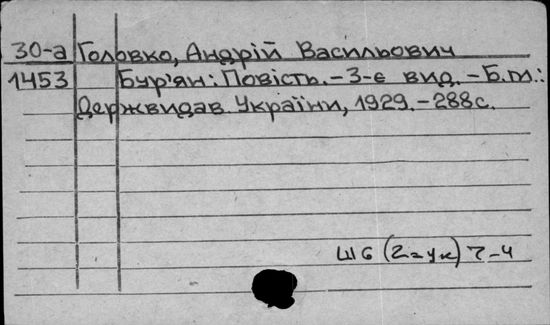 30-а Головко, Андрій Васильович
1453 Бур'ян: Повість. - 3-є вид. - Б.м.:
Держвидав України, 1929. - 288 с.
Ш6 (2=Ук) 7-4